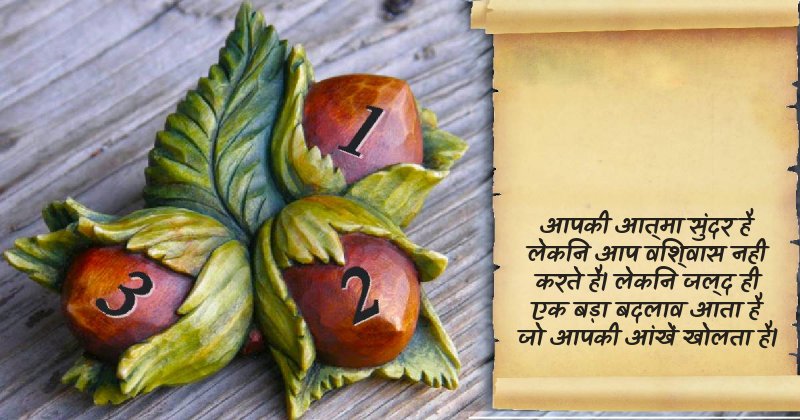 1
2
3
आपकी आत्मा सुंदर है
लेकनि आप वशि्वास नही
करते है। लेकनि जल्द ही
एक बड़ा बदलाव आता है
जो आपकी आंखें खोलता है।